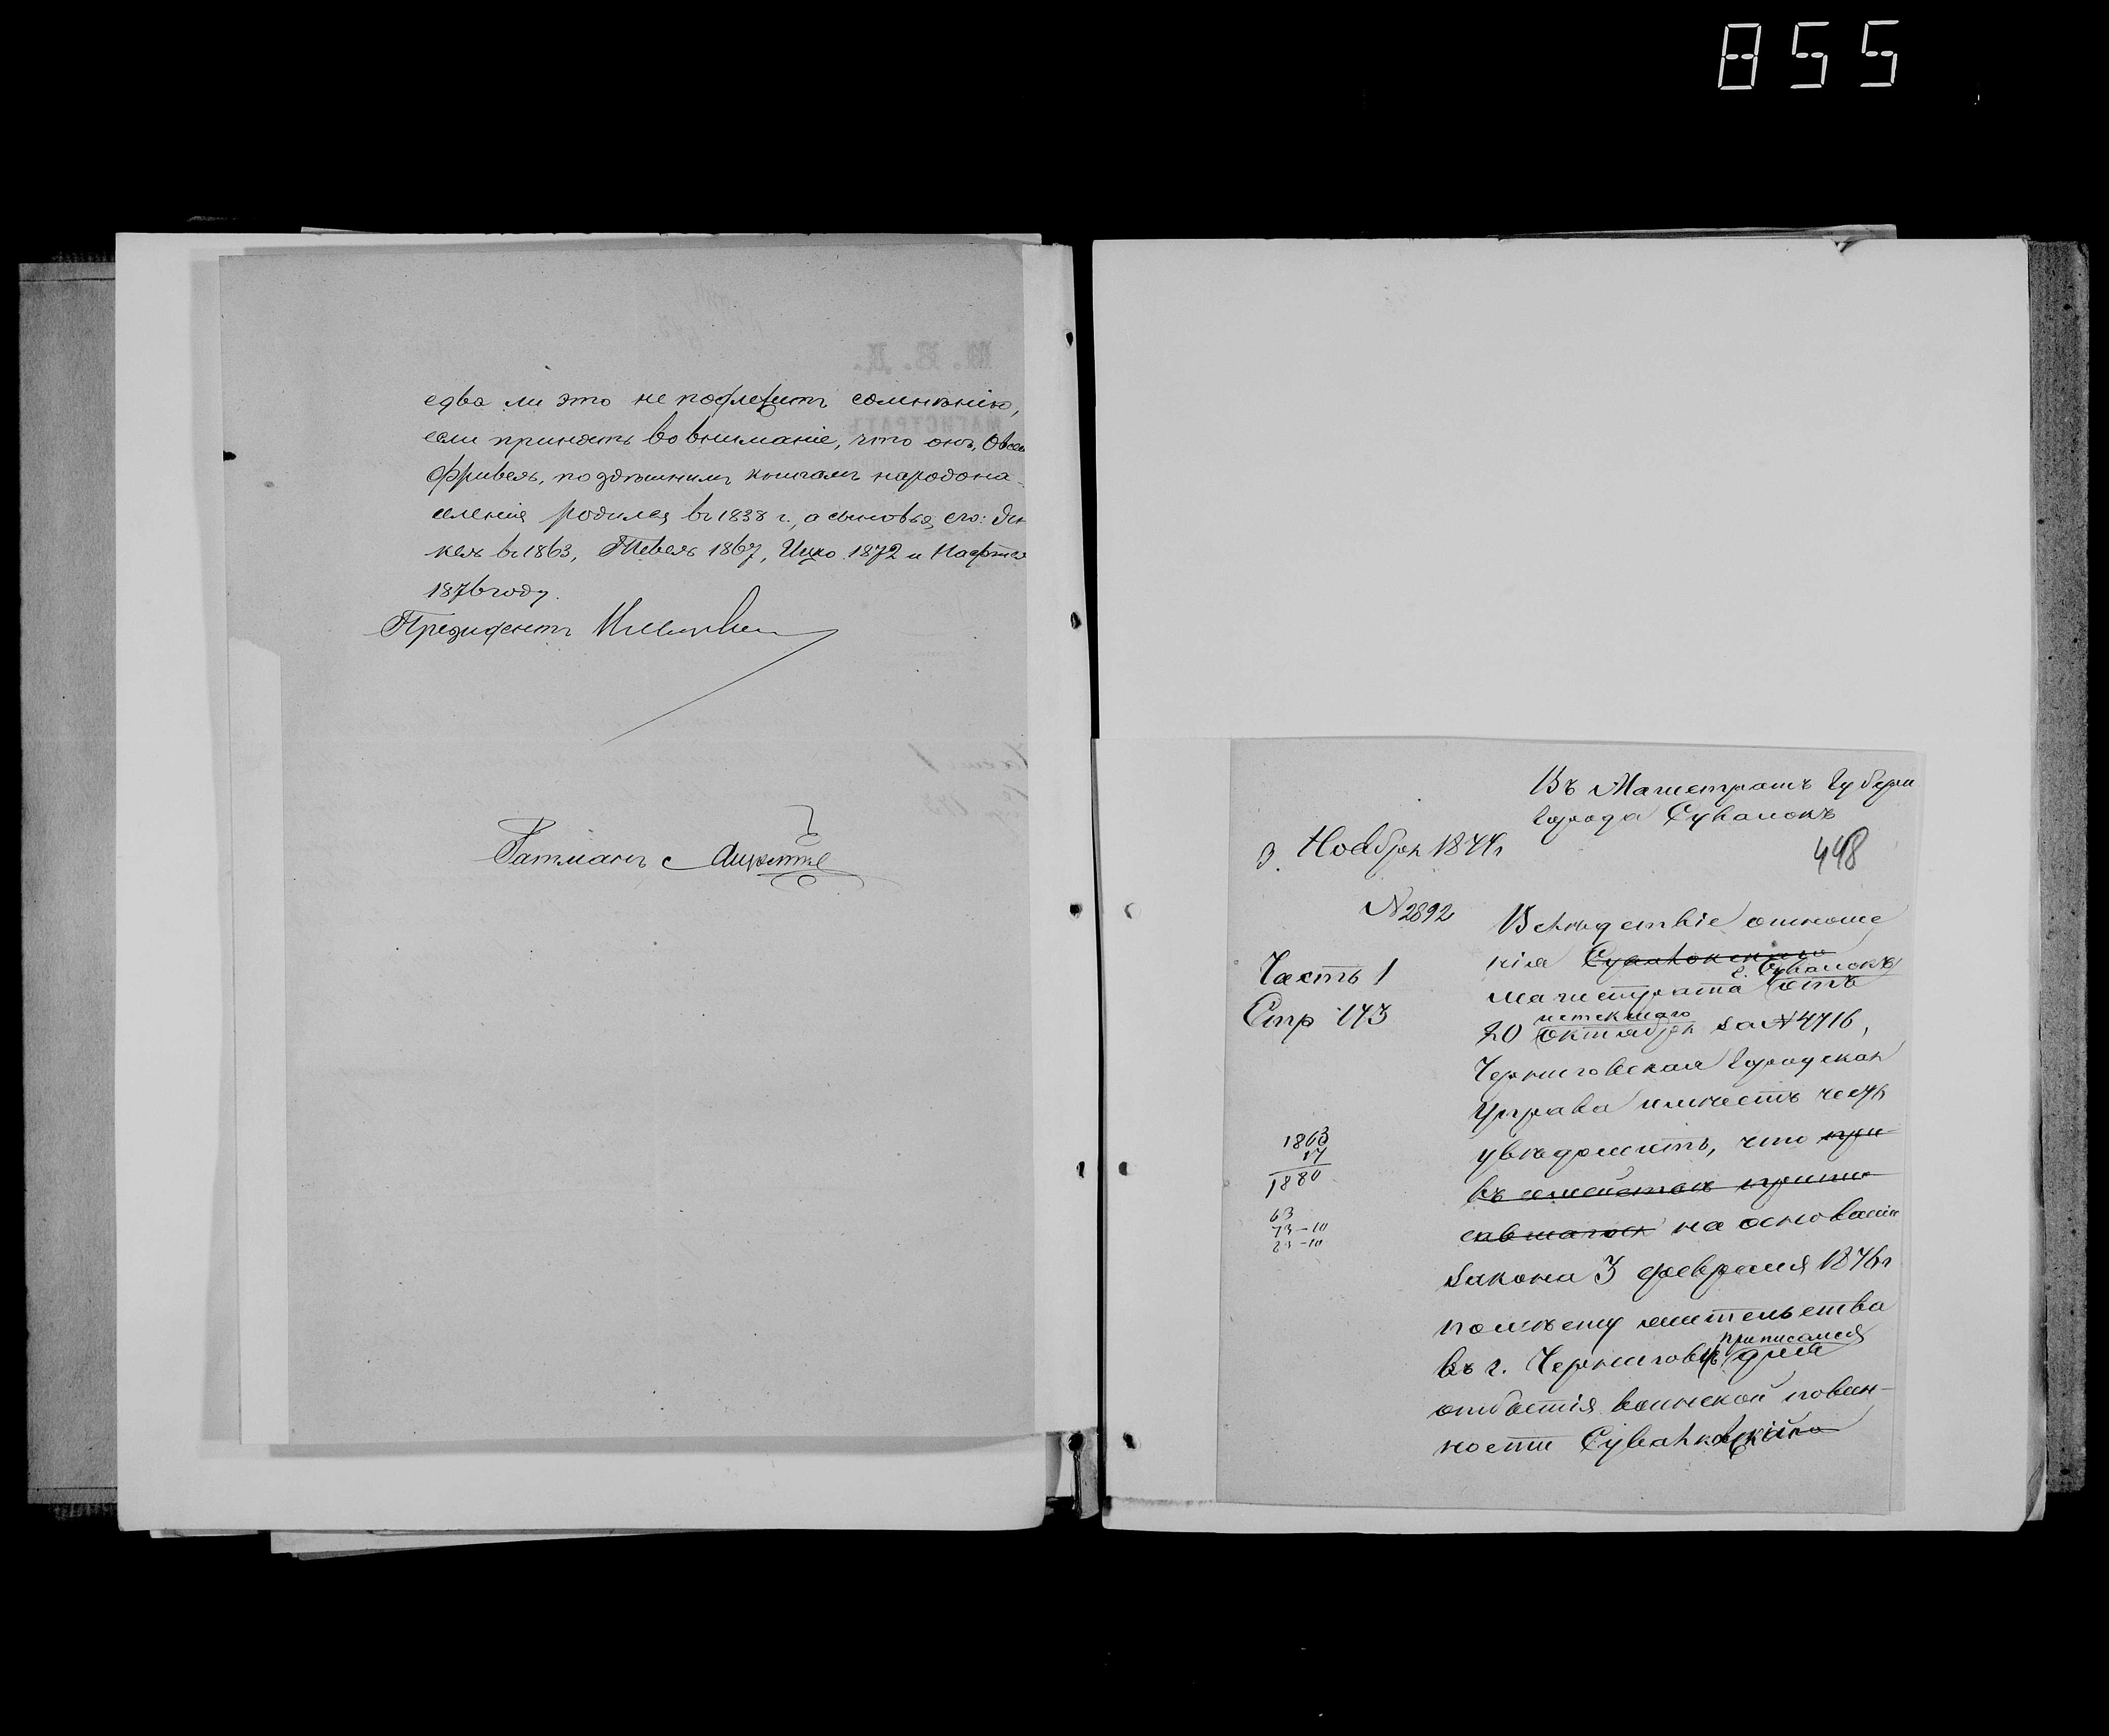 855
едва ли это не подлежитъ сомнѣнію,
если принять во вниманіе, что онъ, Овсей
Фривель, по здѣшнимъ книгамъ народона-
селенія родился въ 1838 г., а сыновья его:
кель въ 1863, Тевель 1867, Ицко 1872 и
1876 году.
Президентъ
Ратманъ
Въ Магистратъ Губерн
города Сувалокъ
3 Ноября 1877 г
448
N 2892
Часть 1
Стр 173
Вслѣдствіе отноше
нія Сувалокскаго
г. Сувалокъ
магистрата отъ
истекшаго
20 октября за N 4716,
Черниговская Городская
Управа имѣетъ честь
увѣдомить, что при
въ семействѣ припи
савшагося на основаніи
закона 3 февраля 1876 г
по мѣсту жительства
приписался
въ г. Черниговѣ для
отбытія воинской повин-
ности
1863
17
1880
63
73-10
83-10